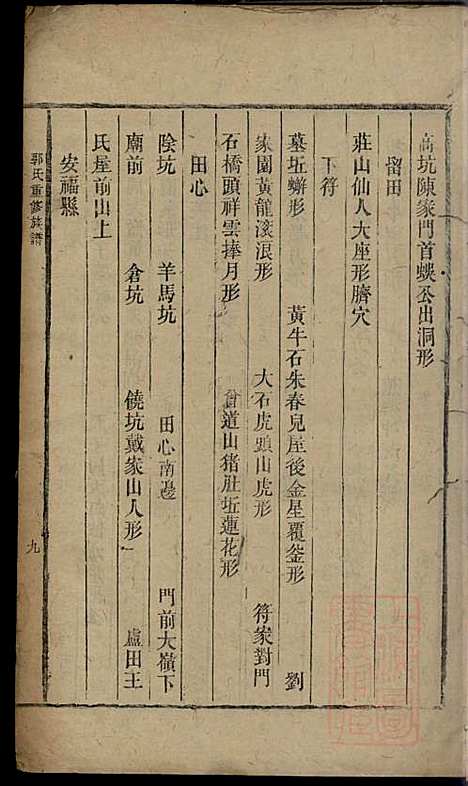 高坑陳家門首蜈公出洞形
留田
莊山仙人大座形臍穴
下符
墓坵蠏形 黃牛石朱春兒屋後金星覆釜形 劉
家園黃龍滾浪形 大石虎頭山虎形 符家對門
石橋頭祥雲捧月形 曾道山猪肚坵蓮花形
田心
陰坑 羊馬坑 田心南邊 門前大嶺下
廟前 倉坑 饒坑戴家山人形 盧田王
氏屋前山上
安福縣
郭氏重修族譜 九